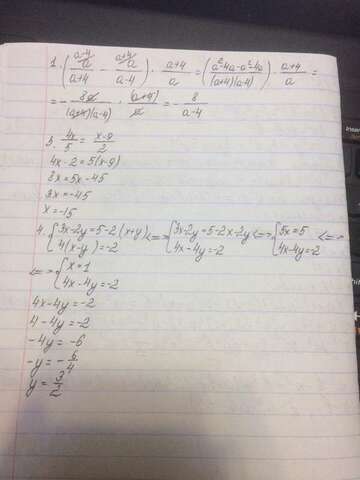 1. (a/(a+4) - a/(a-4)) · (a+4)/a = ((a²-4a-a²-4a)/((a+4)(a-4))) · (a+4)/a =
= - 8a/((a+4)(a-4)) · (a+4)/a = - 8/(a-4)
3. 4x/5 = (x-9)/2
4x·2 = 5(x-9)
8x = 5x-45
3x = -45
x = -15
4. {3x-2y=5-2(x+y) 4(x-y)=-2 <=> {3x-2y=5-2x-2y 4x-4y=-2 <=> {5x=5 4x-4y=-2 <=>
<=> {x=1 4x-4y=-2
4x-4y=-2
4-4y=-2
-4y=-6
-y=-6/4
y=3/2